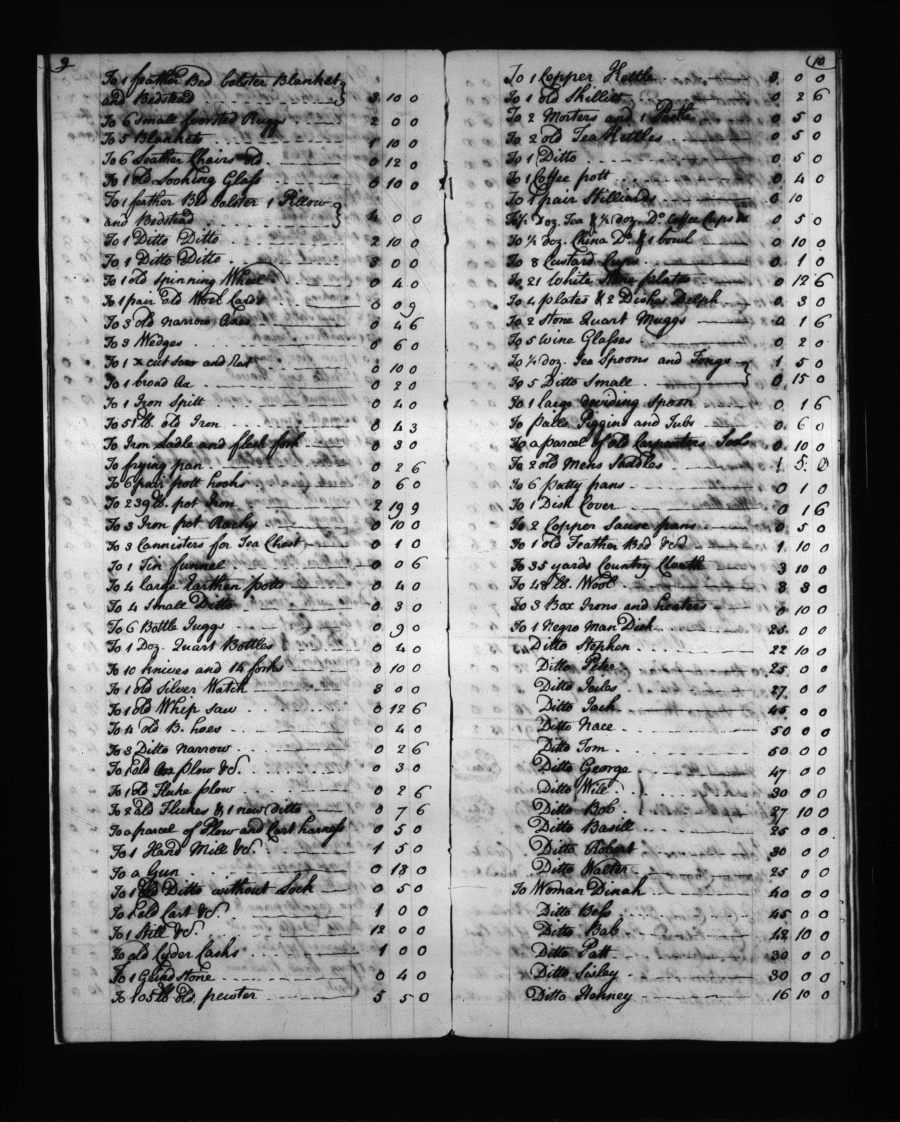 9
To 1 feather Bed bolster Blanket
and Bedstead 3 10 0
To 6 Small worsted Ruggs 2 0 0
To 5 Blankets 1 10 0
To 6 Leather Chairs old 0 12 0
To 1 old Looking Glass 0 10 0
To 1 feather Bed bolster 1 Pillow
and Bedstead 4 0 0
To 1 Ditto Ditto 2 10 0
To 1 Ditto Ditto 3 0 0
To 1 old Spinning Wheel 0 4 0
To 1 pair old Wool Cards 0 0 9
To 3 old narrow Axes 0 4 6
To 3 Wedges 0 6 0
To 1 x cut Saw and Rest 0 10 0
To 1 broad Ax 0 2 0
To 1 Iron Spitt 0 4 0
To 51 lb. old Iron 0 4 3
To Iron Ladle and flesh fork 0 3 0
To frying pan 0 2 6
To 6 pair pott hooks 0 6 0
To 239 lb. pot Iron 2 19 9
To 3 Iron pot Racks 0 10 0
To 3 Cannisters for Tea Chest 0 1 0
To 1 Tin funnel 0 0 6
To 4 large Earthen potts 0 4 0
To 4 Small Ditto 0 3 0
To 6 Bottle Juggs 0 9 0
To 1 Doz. Quart Bottles 0 4 0
To 10 knives and 14 forks 0 10 0
To 1 old Silver Watch 3 0 0
To 1 old Whip Saw 0 12 6
To 4 old B. hoes 0 4 0
To 3 Ditto narrow 0 2 6
To 1 old plow &c. 0 3 0
To 1 old Fluke plow 0 2 6
To 2 old Flukes & 1 new ditto 0 7 6
To a parcel of Plow and Cart harness 0 5 0
To 1 Hand Mill &c. 1 5 0
To a Gun 0 18 0
To 1 Ditto without Lock 0 5 0
To 1 old Cart &c. 1 0 0
To 1 Still &c. 12 0 0
To old Cyder Casks 1 0 0
To 1 Grind Stone 0 4 0
To 105 lb old pewter 5 5 0
10
To 1 Copper Kettle 3 0 0
To 1 old Skillet 0 2 6
To 2 Morters and 1 Pestle 0 5 0
To 2 old Tea Kettles 0 5 0
To 1 Ditto 0 5 0
To 1 Coffee pott 0 4 0
To 1 pair Stilliards 0 10
To ½ Doz. Tea & ½ doz. Do. Coffee Cups &c 0 5 0
To ½ doz. China Do. & 1 bowl 0 10 0
To 8 Custard Cups 0 1 0
To 21 White Stone plates 0 12 6
To 4 plates & 2 Dishes Delph 0 3 0
To 2 Stone Quart Muggs 0 1 6
To 5 Wine Glasses 0 2 0
To ½ doz. Tea Spoons and Tongs 1 5 0
To 5 Ditto Small 0 15 0
To 1 large dividing Spoon 0 1 6
To Pails Piggins and Tubs 0 6 0
To a parcel of old Carpenters Tools 0 10 0
To 2 old Mens Saddles 1 5 0
To 6 patty pans 0 1 0
To 1 Dish Cover 0 1 6
To 2 Copper Sause pans 0 5 0
To 1 old Feather Bed &c 1 10 0
To 35 yards Country Cloath 3 10 0
To 48 lb. Wool 3 3 0
To 3 Box Irons and heaters 0 10 0
To 1 Negro Man Dick 25 0 0
Ditto Stephen 22 10 0
Ditto Peter 25 0 0
Ditto Jules 27 0 0
Ditto Jack 45 0 0
Ditto Nace 50 0 0
Ditto Tom 50 0 0
Ditto George 47 0 0
Ditto Will 30 0 0
Ditto Bob 27 10 0
Ditto Basill 25 0 0
Ditto Robert 30 0 0
Ditto Walter 25 0 0
To Woman Dinah 40 0 0
Ditto Bess 45 0 0
Ditto Bab 42 10 0
Ditto Patt 30 0 0
Ditto Sisley 30 0 0
Ditto Henney 16 10 0